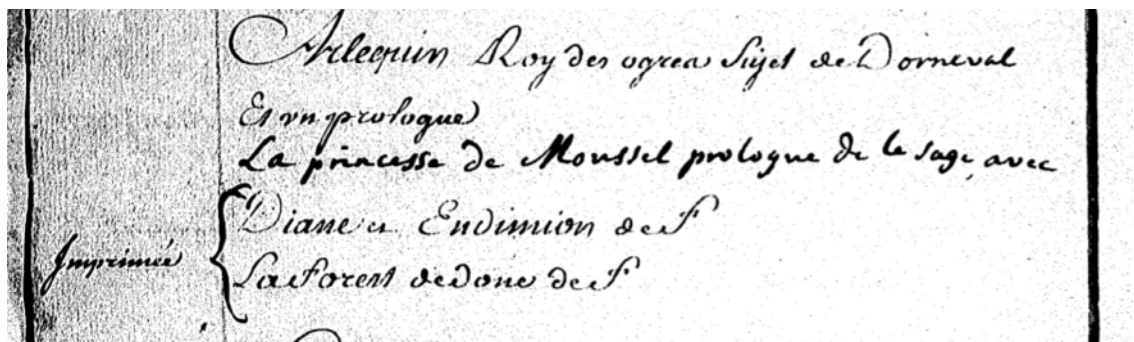 Arlequin Roy des ogres Sujet de Dorneval
Et vn prologue
La princesse de Moussel prologue de le sage avec
Diane et Endimion de F
Imprimée
La forest dedone de F